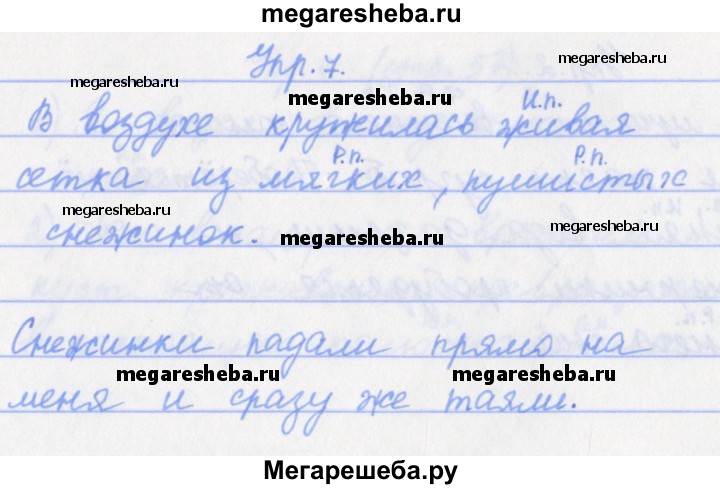 megaresheba.ru
Упр. 7.
megaresheba.ru
megaresheba.ru
megaresheba.ru
И.п.
В воздухе кружилась живая
Р.п. Р.п.
сетка из мягких, пушистых
megaresheba.ru
снежинок.
megaresheba.ru
megaresheba.ru
Снежинки падали прямо на
megaresheba.ru megaresheba.ru
меня и сразу же таяли.
Мегарешеба.ру